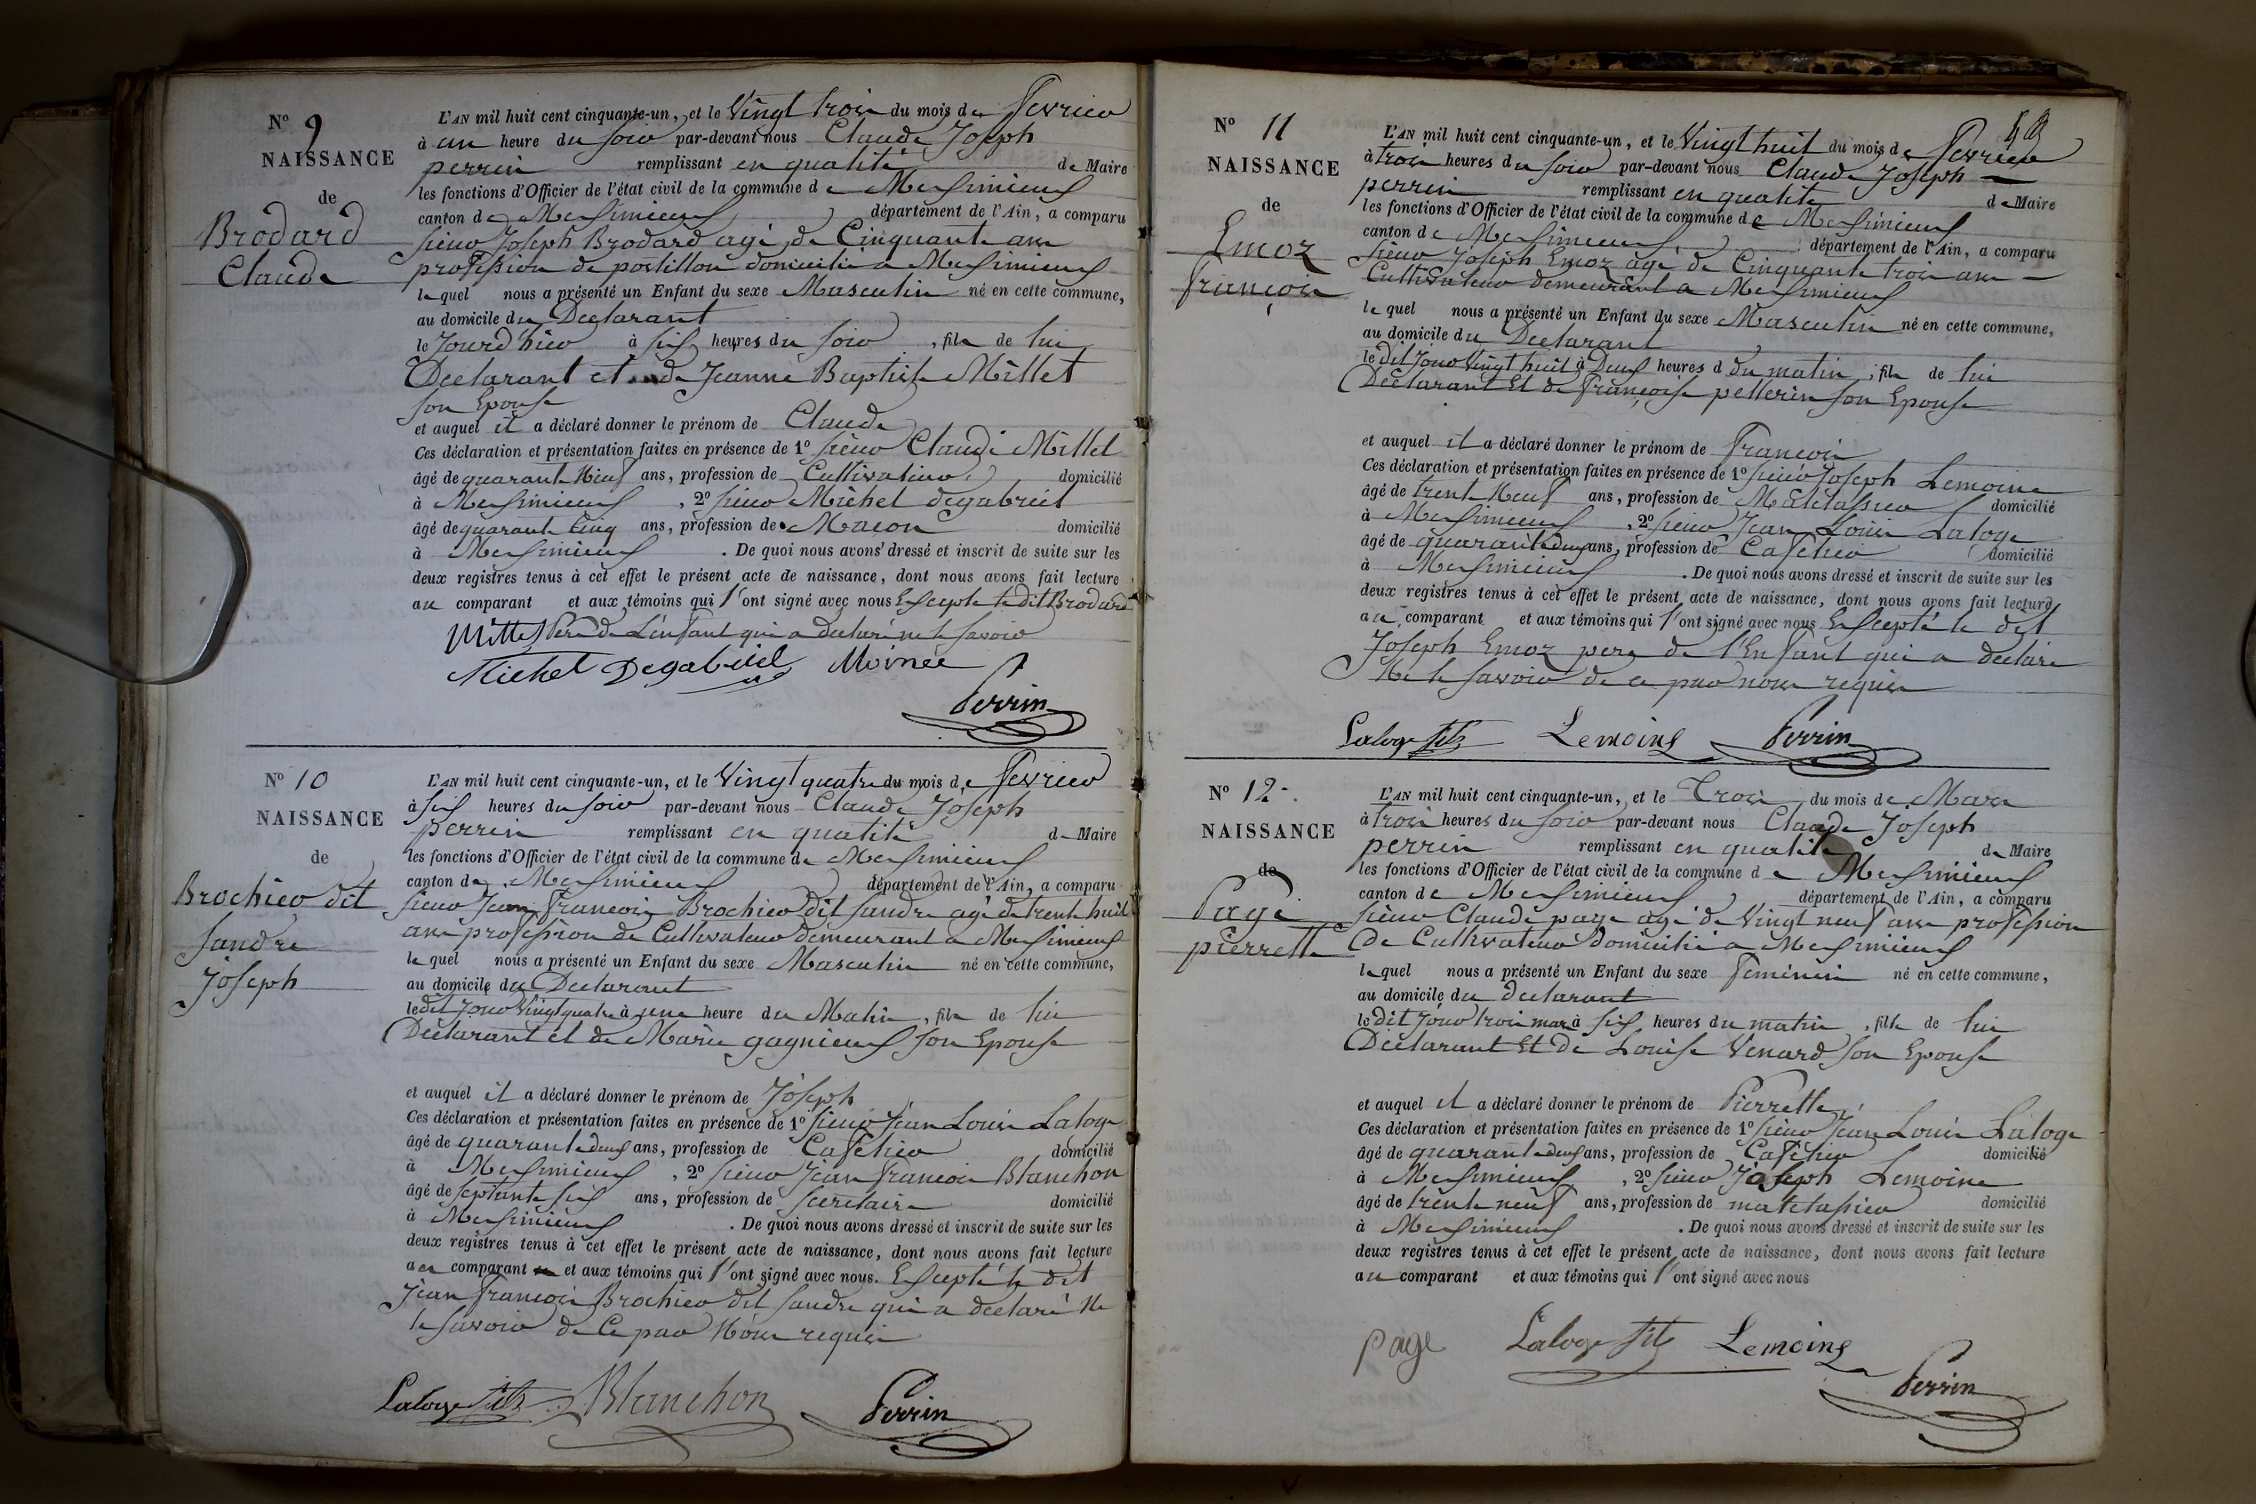 Nº 9
NAISSANCE
de
Brodard
Claude
L'AN mil huit cent cinquante-un, et le Vingt trois du mois de fevrier
à un heure du soir par-devant nous Claude Joseph
perrin remplissant en qualité de Maire
les fonctions d'Officier de l'état civil de la commune de Meximieux
canton de Meximieux département de l'Ain, a comparu
sieur Joseph Brodard agé de Cinquante ans
profession de postillon domicilié a Meximieux
lequel nous a présenté un Enfant du sexe Masculin né en cette commune,
au domicile du Declarant
le Jourd'hier à six heures du soir, fils de lui
Declarant et de Jeanne Baptiste Millet
son Epouse
et auquel il a déclaré donner le prénom de Claude
Ces déclaration et présentation faites en présence de 1º sieur Claude Millet
âgé de quarante Neuf ans, profession de Cultivateur domicilié
à Meximieux, 2º sieur Michel degabriel
âgé de quarante Cinq ans, profession de Macon domicilié
à Meximieux. De quoi nous avons dressé et inscrit de suite sur les
deux registres tenus à cet effet le présent acte de naissance, dont nous avons fait lecture
au comparant et aux témoins qui l'ont signé avec nous Excepté le dit Brodard
Millet Pere de L'enfant qui a declaré ne le savoir
Michel Degabriel Moinée
Perrin
Nº 10
NAISSANCE
de
Brochier dit
sandre
Joseph
L'AN mil huit cent cinquante-un, et le Vingt quatre du mois de fevrier
à six heures du soir par-devant nous Claude Joseph
perrin remplissant en qualité de Maire
les fonctions d'Officier de l'état civil de la commune de Meximieux
canton de Meximieux département de l'Ain, a comparu
sieur Jean francois Brochier dit sandre agé de trente huit
ans profession de Cultivateur demeurant a Meximieux
lequel nous a présenté un Enfant du sexe Masculin né en cette commune,
au domicile du Declarant
le dit jour Vingt quatre à une heure du Matin, fils de lui
Declarant et de Marie gagnieux son Epouse
et auquel il a déclaré donner le prénom de Joseph
Ces déclaration et présentation faites en présence de 1º sieur Jean Louis Laloge
âgé de quarante deux ans, profession de Cafetier domicilié
à Meximieux, 2º sieur Jean francois Blanchon
âgé de septante six ans, profession de secretaire domicilié
à Meximieux. De quoi nous avons dressé et inscrit de suite sur les
deux registres tenus à cet effet le présent acte de naissance, dont nous avons fait lecture
au comparant et aux témoins qui l'ont signé avec nous. Excepté le dit
Jean francois Brochier dit sandre qui a declaré Ne
le savoir de Ce par Nous requis
Laloge fils Blanchon Perrin
Nº 11
NAISSANCE
de
Emoz
françois
L'AN mil huit cent cinquante-un, et le Vingt huit du mois de fevrier
à trois heures du soir par-devant nous Claude Joseph
perrin remplissant en qualité de Maire
les fonctions d'Officier de l'état civil de la commune de Meximieux
canton de Meximieux département de l'Ain, a comparu
sieur Joseph Emoz agé de Cinquante trois ans
Cultivateur demeurant a Meximieux
lequel nous a présenté un Enfant du sexe Masculin né en cette commune,
au domicile du Declarant
le dit jour Vingt huit à Deux heures d du matin, fils de lui
Declarant Et de françoise pellerin son Epouse
et auquel il a déclaré donner le prénom de francois
Ces déclaration et présentation faites en présence de 1º sieur Joseph Lemoine
âgé de trente Neuf ans, profession de Matelassier domicilié
à Meximieux, 2º sieur Jean Louis Laloge
âgé de quarante deux ans, profession de Cafetier domicilié
à Meximieux. De quoi nous avons dressé et inscrit de suite sur les
deux registres tenus à cet effet le présent acte de naissance, dont nous avons fait lecture
au comparant et aux témoins qui l'ont signé avec nous Excepté le dit
Joseph Emoz pere de l'Enfant qui a declare
Ne le savoir de ce par nous requis
Laloge fils Lemoine Perrin
Nº 12
NAISSANCE
de
Page
pierrette
L'AN mil huit cent cinquante-un, et le Trois du mois de Mars
à trois heures du soir par-devant nous Claude Joseph
perrin remplissant en qualité de Maire
les fonctions d'Officier de l'état civil de la commune de Meximieux
canton de Meximieux département de l'Ain, a comparu
sieur Claude page agé de Vingt neuf ans profession
de Cultivateur Domicilié a Meximieux
lequel nous a présenté un Enfant du sexe feminin né en cette commune,
au domicile du declarant
le dit jour trois mars à six heures du matin, fille de lui
Declarant Et De Louise Venard son Epouse
et auquel il a déclaré donner le prénom de Pierrette
Ces déclaration et présentation faites en présence de 1º sieur Jean Louis Laloge
âgé de quarante deux ans, profession de Cafetier domicilié
à Meximieux, 2º sieur Joseph Lemoine
âgé de trente neuf ans, profession de matelassier domicilié
à Meximieux. De quoi nous avons dressé et inscrit de suite sur les
deux registres tenus à cet effet le présent acte de naissance, dont nous avons fait lecture
au comparant et aux témoins qui l'ont signé avec nous
page Laloge fils Lemoine
Perrin